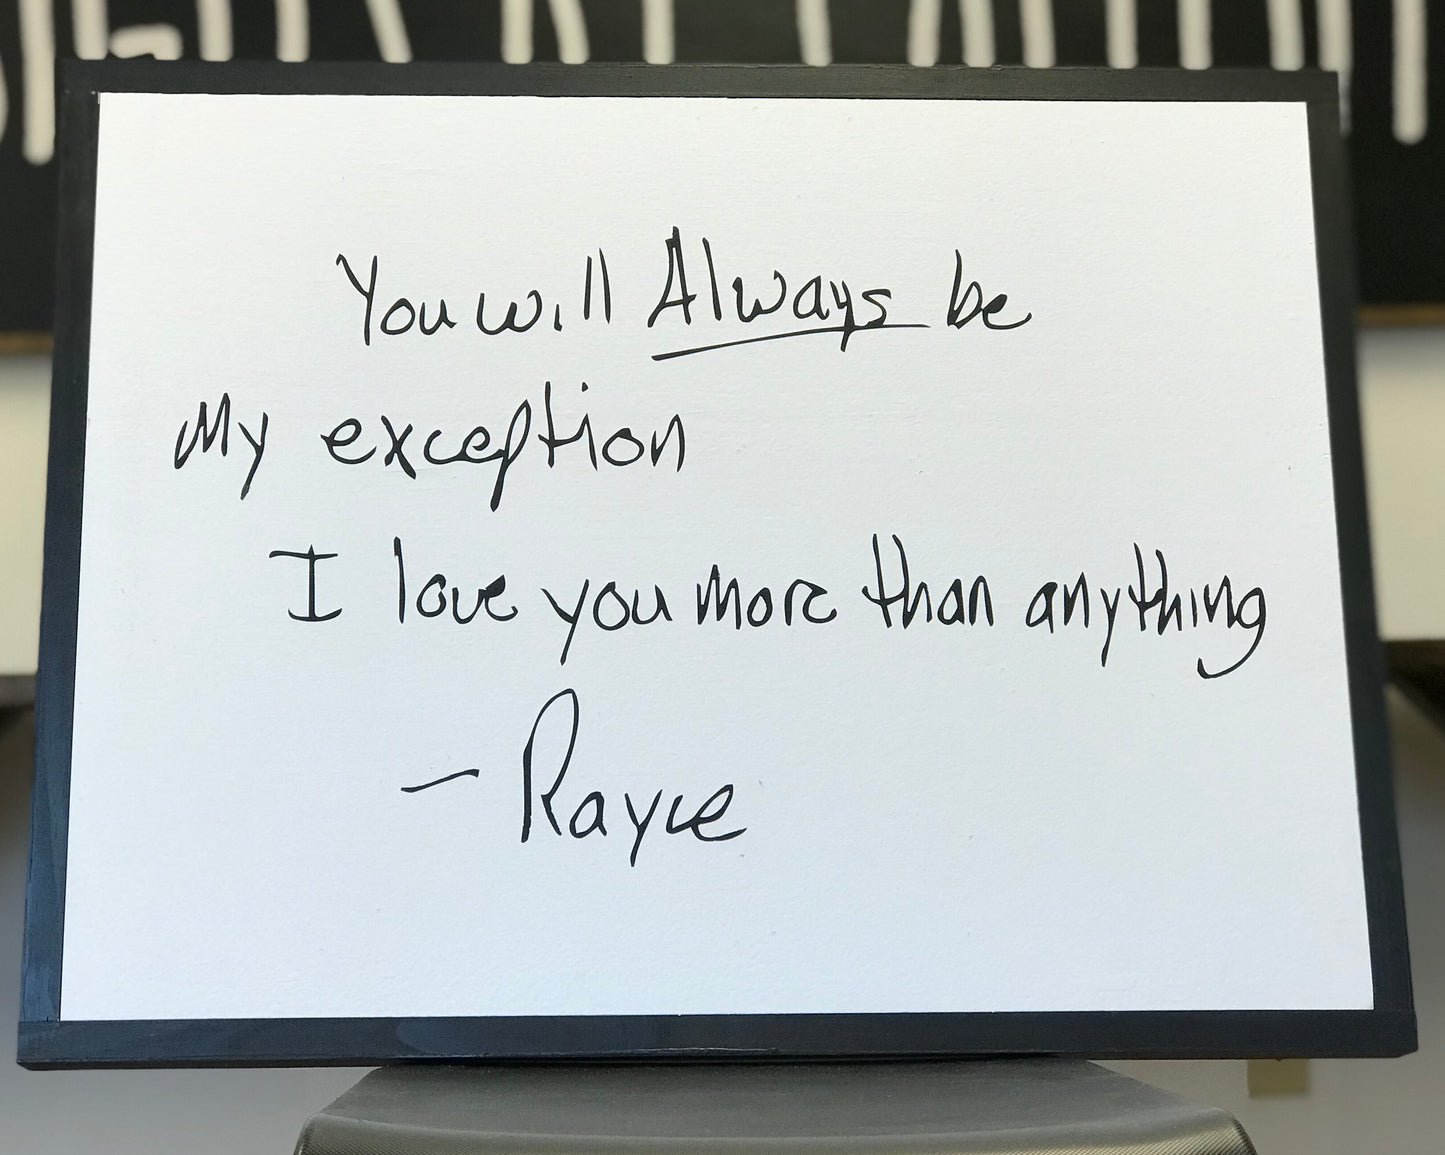 You will Always be
My exception
I love you more than anything
- Rayce